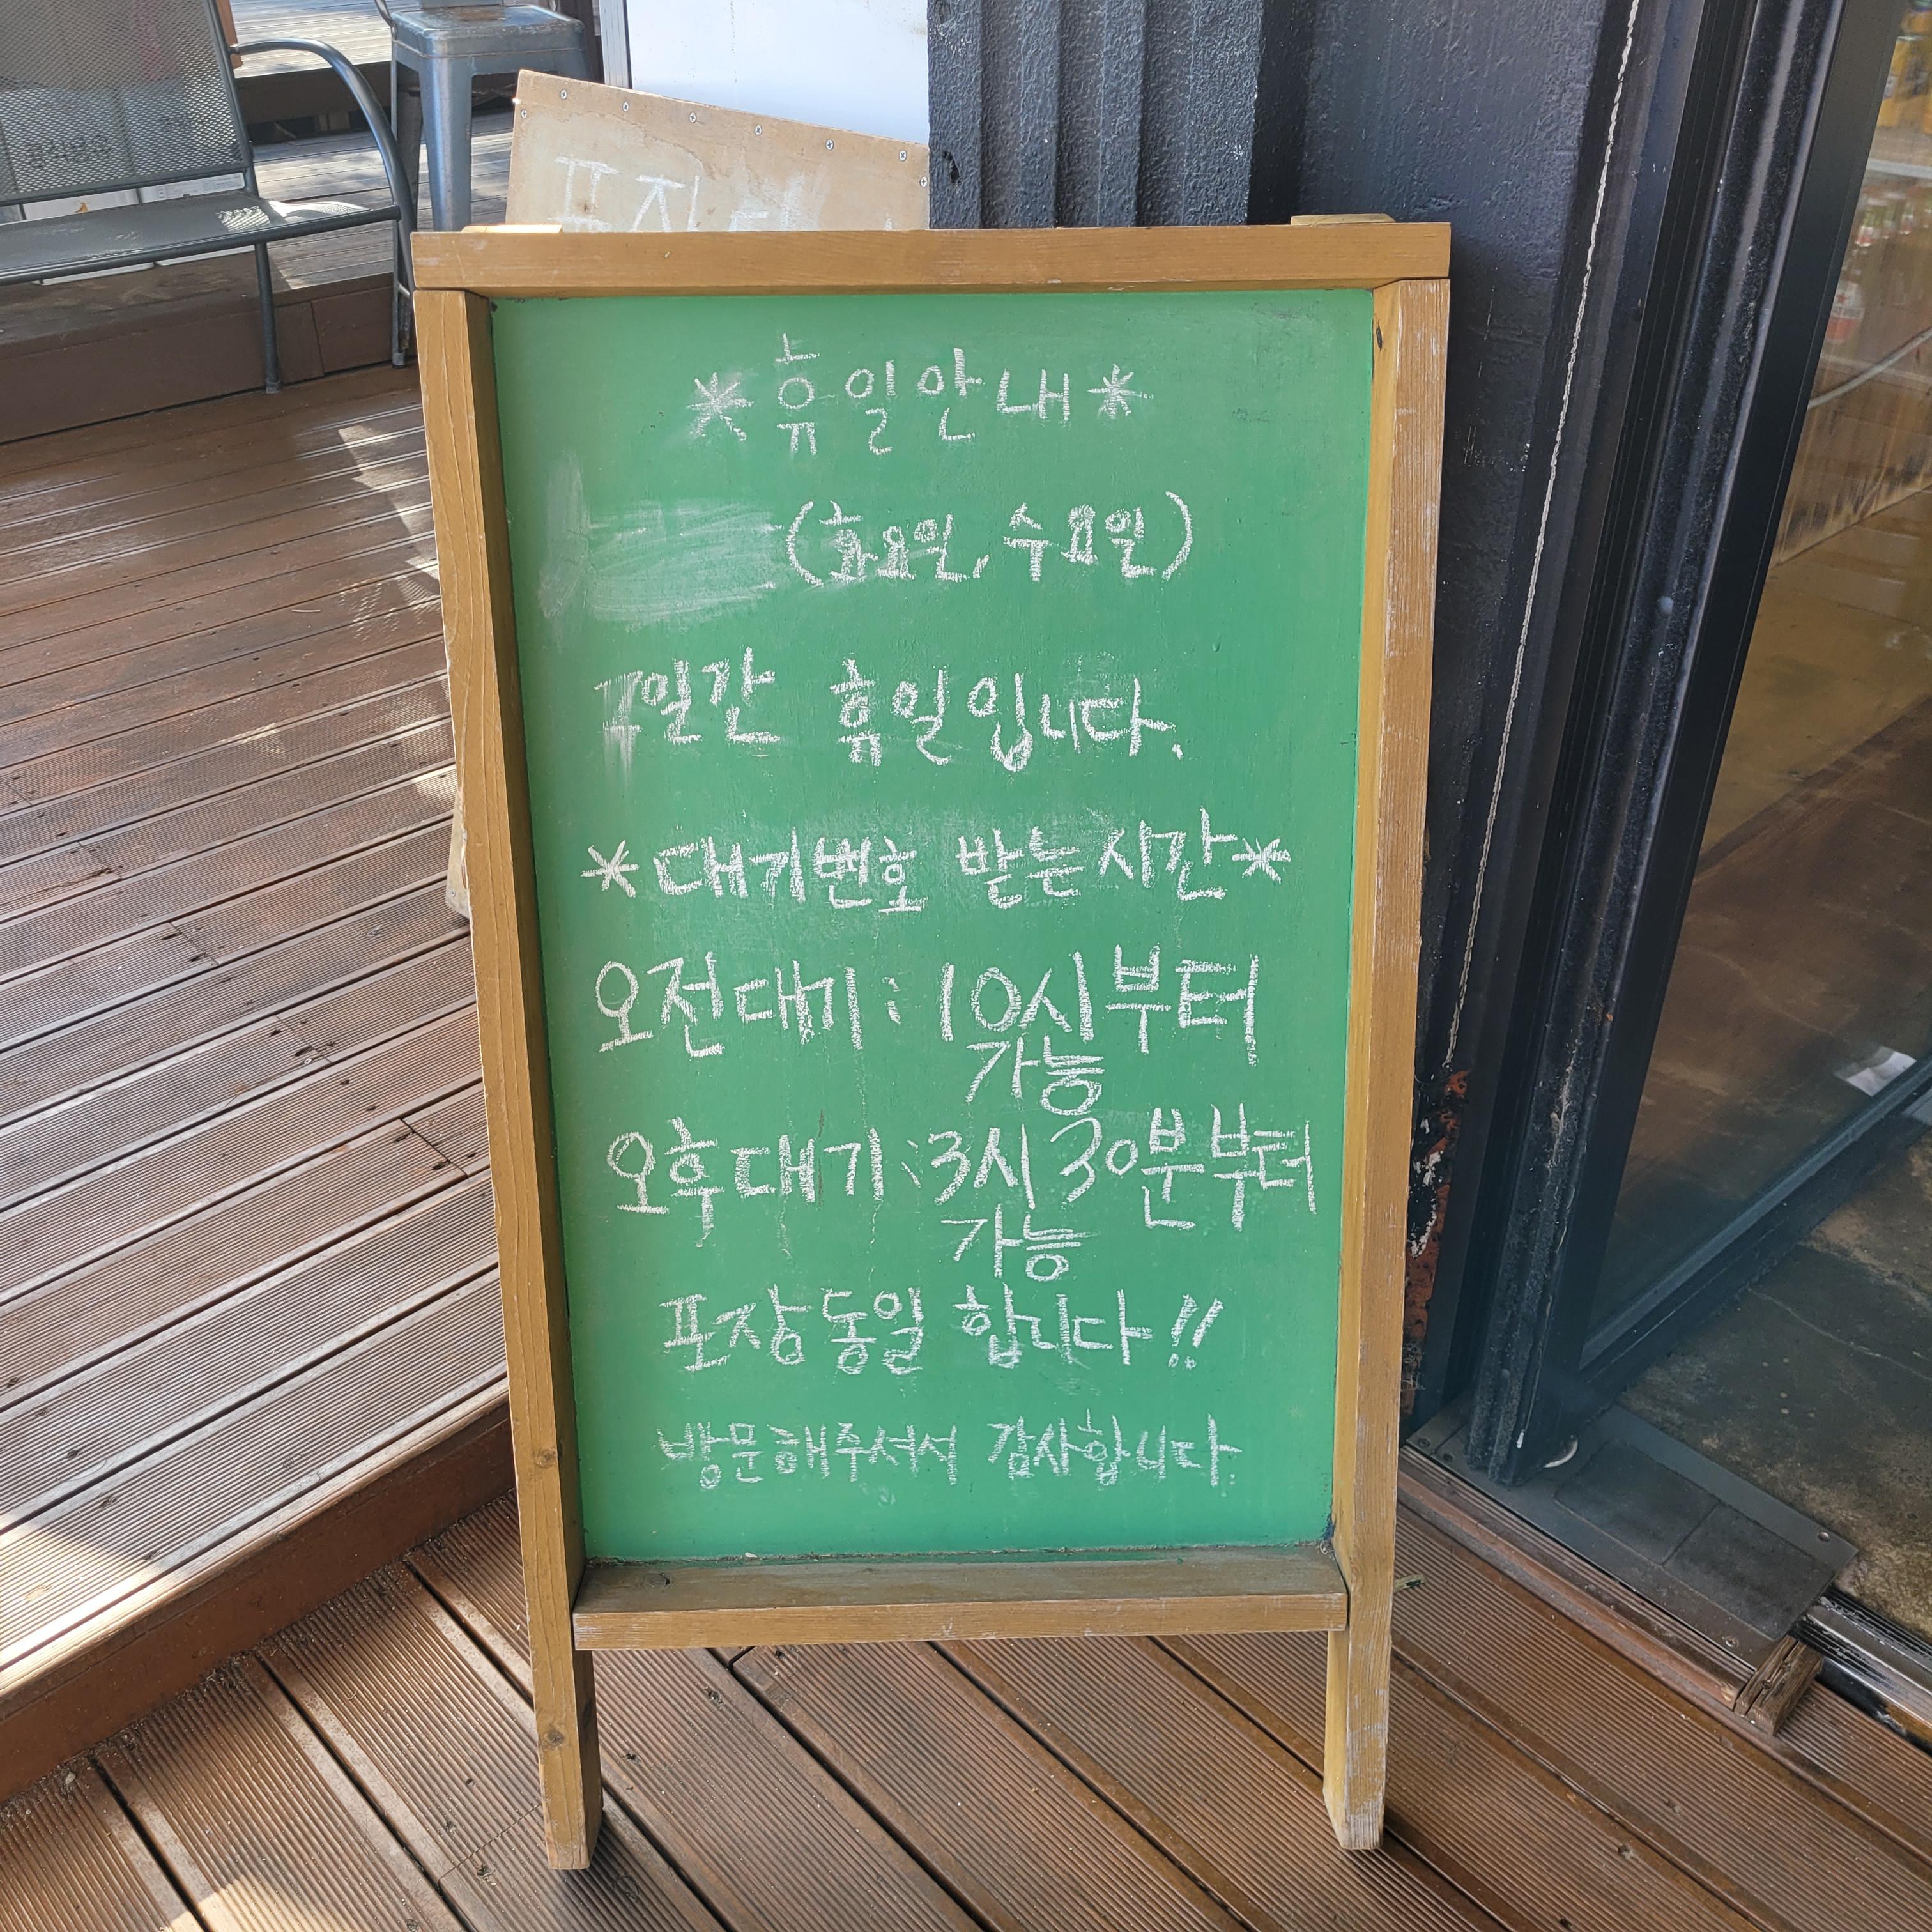 포장
*휴일안내*
(화요일, 수요일)
일간 휴일입니다.
*대기번호 받는시간*
오전대기: 10시부터
가능
오후대기:3시30분부터
가능
포장동일 합니다!!
방문해주셔서 감사합니다.